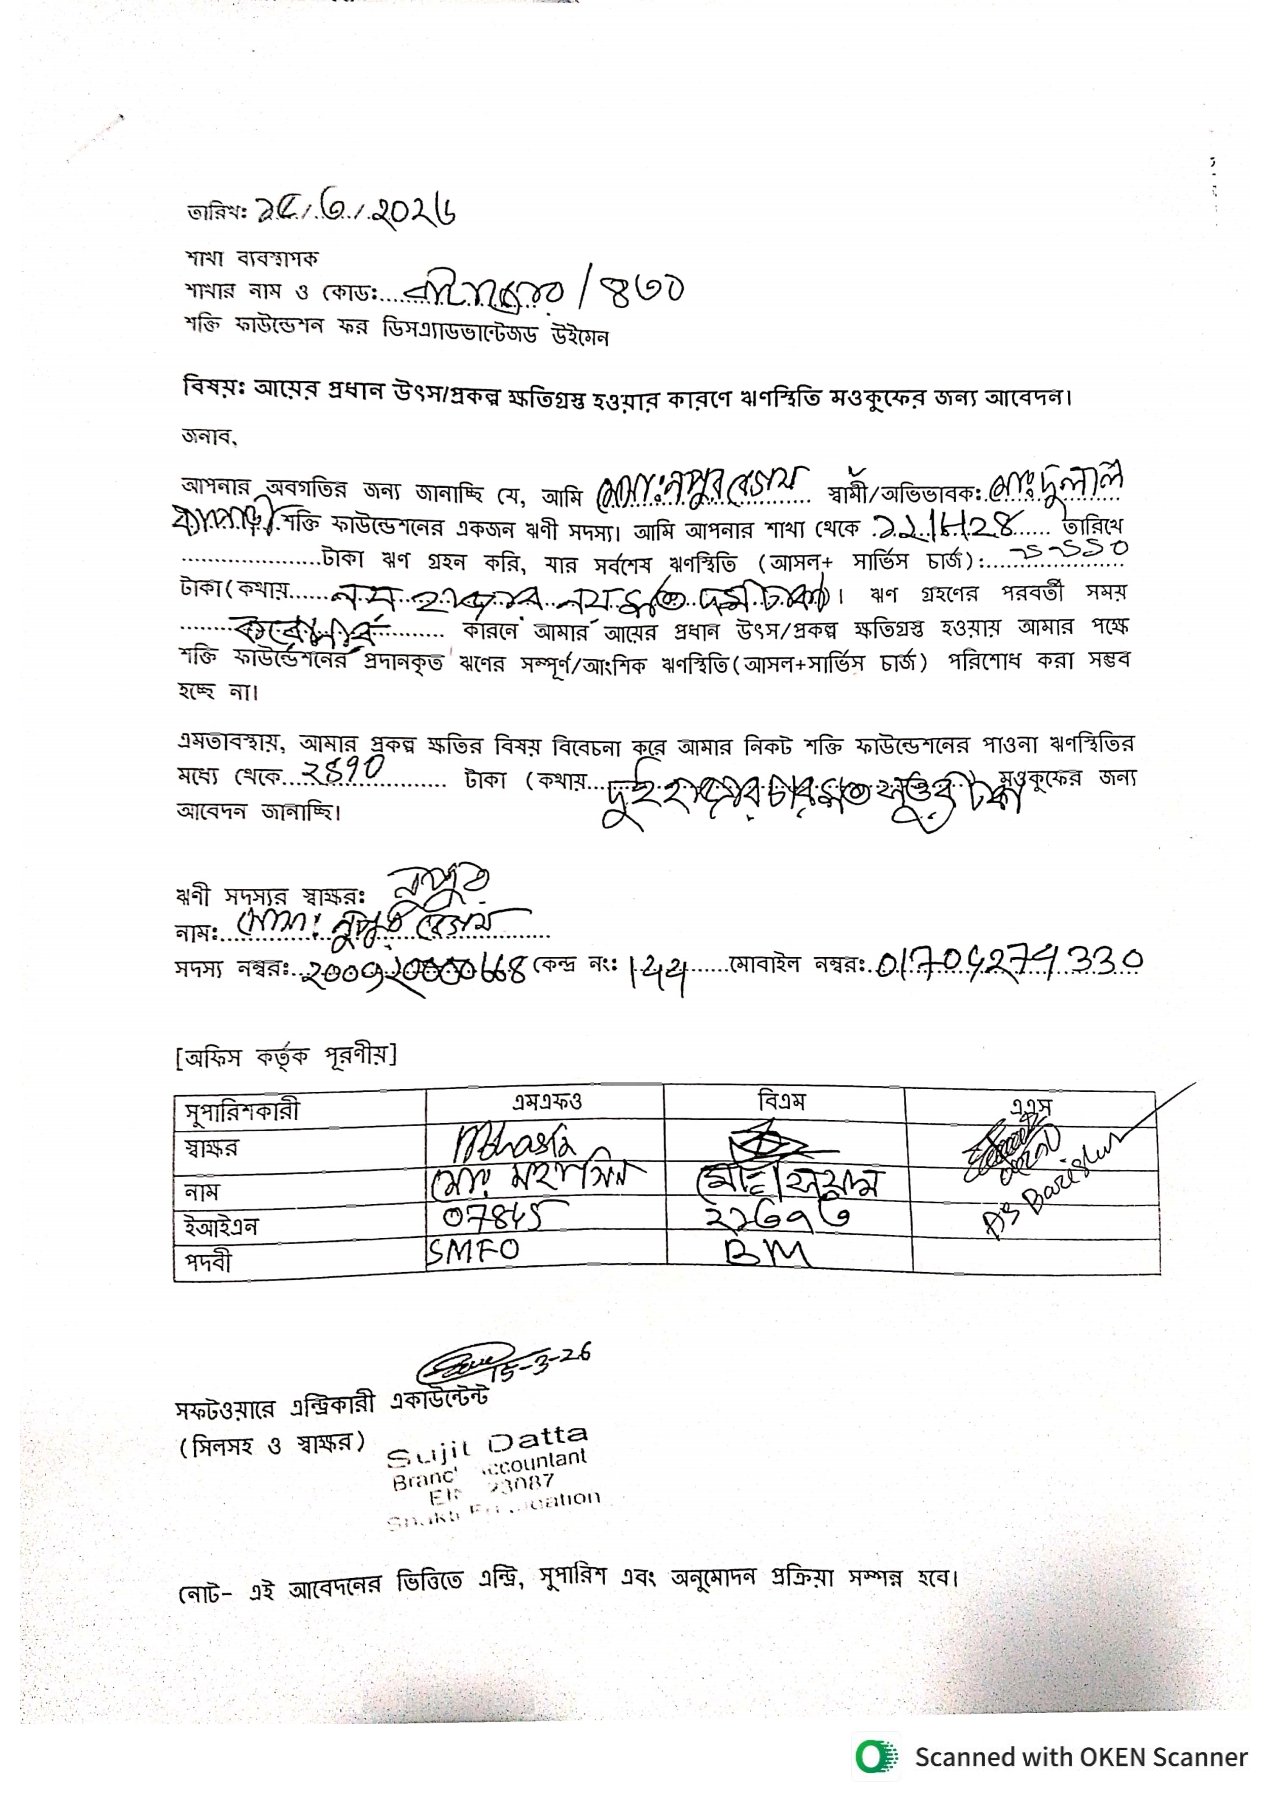 তারিখ: ১৫/৩/২০২৬
শাখা ব্যবস্থাপক
শাখার নাম ও কোড: /৪৩০
শক্তি ফাউন্ডেশন ফর ডিসএ্যাডভান্টেজড উইমেন
বিষয়: আয়ের প্রধান উৎস/প্রকল্প ক্ষতিগ্রস্ত হওয়ার কারণে ঋণস্থিতি মওকুফের জন্য আবেদন।
জনাব,
আপনার অবগতির জন্য জানাচ্ছি যে, আমি মোসা: নুপুর বেগম স্বামী/অভিভাবক: মো: দুলাল
শক্তি ফাউন্ডেশনের একজন ঋণী সদস্য। আমি আপনার শাখা থেকে তারিখে
টাকা ঋণ গ্রহন করি, যার সর্বশেষ ঋণস্থিতি (আসল+ সার্ভিস চার্জ):
টাকা (কথায় নয় হাজার নয়শত দশ টাকা)। ঋণ গ্রহণের পরবর্তী সময়
কারনে আমার আয়ের প্রধান উৎস/প্রকল্প ক্ষতিগ্রস্ত হওয়ায় আমার পক্ষে
শক্তি ফাউন্ডেশনের প্রদানকৃত ঋণের সম্পূর্ণ/আংশিক ঋণস্থিতি (আসল+সার্ভিস চার্জ) পরিশোধ করা সম্ভব
হচ্ছে না।
এমতাবস্থায়, আমার প্রকল্প ক্ষতির বিষয় বিবেচনা করে আমার নিকট শক্তি ফাউন্ডেশনের পাওনা ঋণস্থিতির
মধ্যে থেকে ২৪৭০ টাকা (কথায় দুই হাজার চারশত সত্তুর টাকা মওকুফের জন্য
আবেদন জানাচ্ছি।
ঋণী সদস্যর স্বাক্ষর: নুপুর
নাম: মোসা: নুপুর বেগম
সদস্য নম্বর: কেন্দ্র নং: মোবাইল নম্বর:
[অফিস কর্তৃক পূরণীয়]
সুপারিশকারী এমএফও বিএম এএস
স্বাক্ষর
নাম মোঃ মহাসিন
ইআইএন 07845 ২২৩৭৩
পদবী SMFO BM
15-3-26
সফটওয়ারে এন্ট্রিকারী একাউন্টেন্ট
(সিলসহ ও স্বাক্ষর)
Sujit Datta
নোট- এই আবেদনের ভিত্তিতে এন্ট্রি, সুপারিশ এবং অনুমোদন প্রক্রিয়া সম্পন্ন হবে।
Scanned with OKEN Scanner